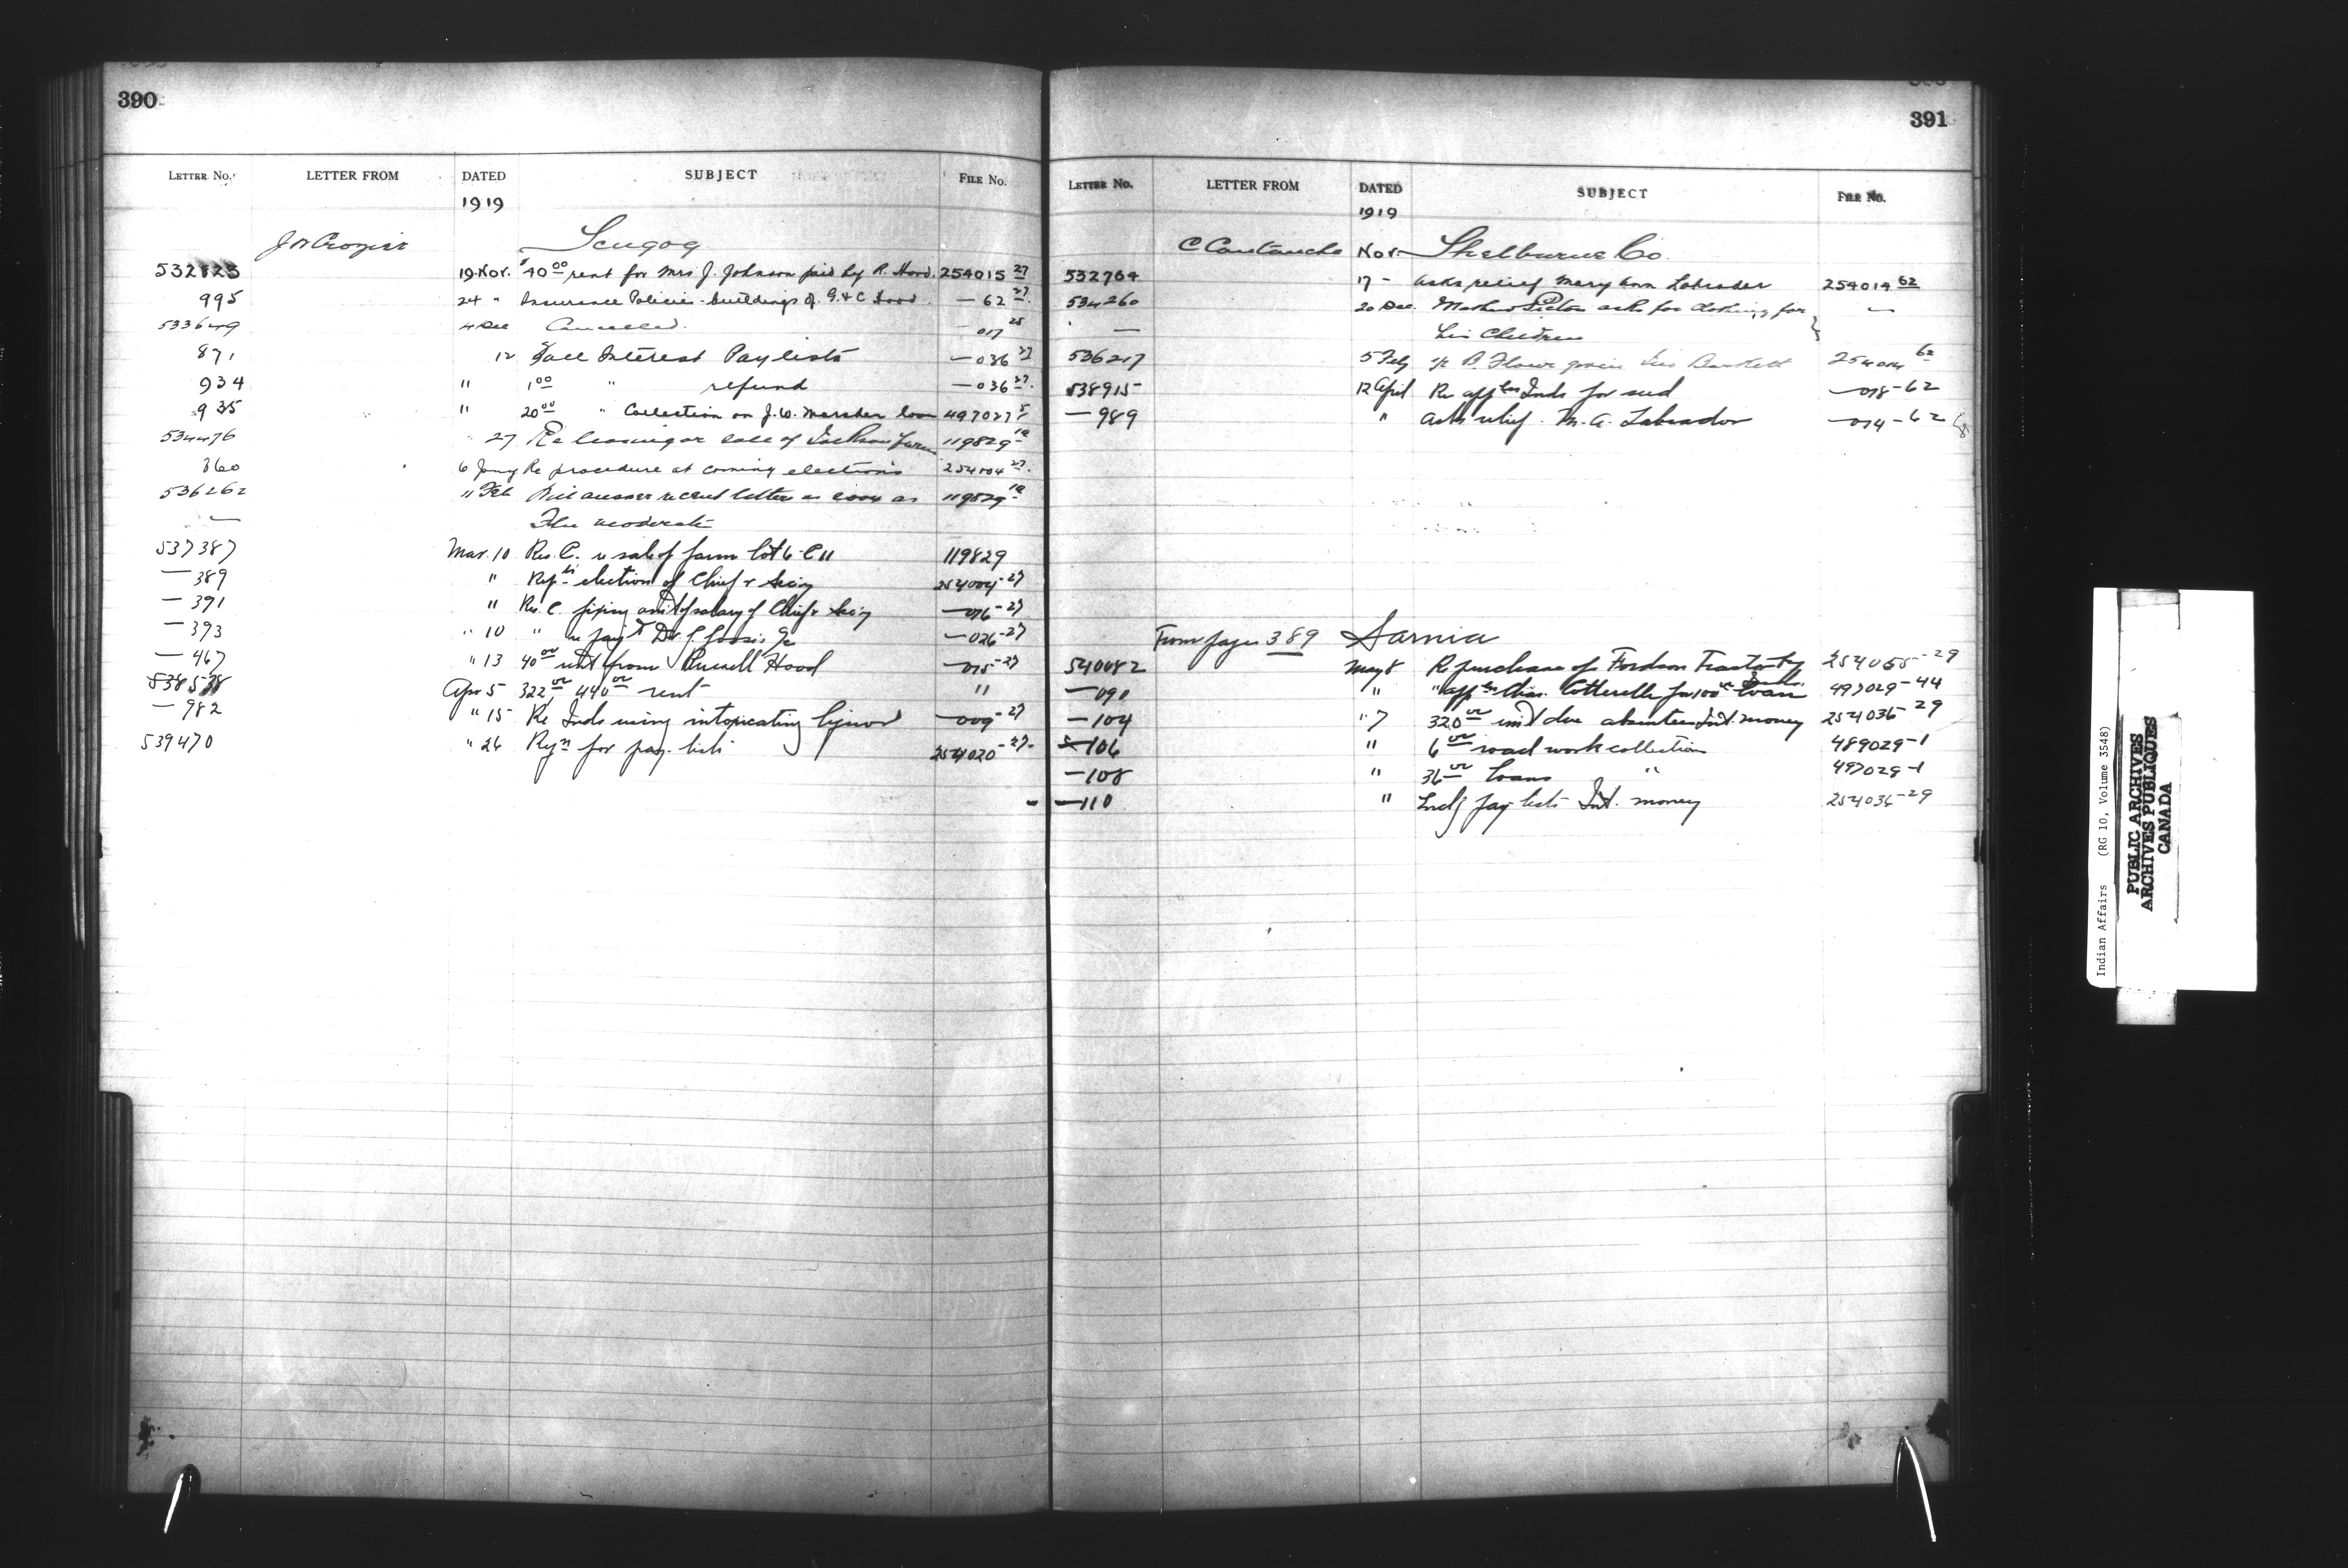 390
LETTER NO. LETTER FROM DATED SUBJECT FILE NO.
1919
J W Crozier Scugog
532823 19 Nov. $40 00 rent for Mrs J. Johnson paid by R. Hood. 254015 27
995 24 " Insurance Policies - buildings of G. & C Hood — 62 27
533649 4 Dec Cancelled. — 017 25
871 12 Fall Interest Paylists — 036 27
934 " 1 00 " refund — 036 27.
935 " 20 00 " Collection on J. W. Marsden loan 497027
534476 27 Re leasing or sale of Jackson farm 119829 1a
360 6 Jany Re procedure at coming elections 254004 27.
536262 11 Feb Will answer recent letter as soon as 119829 1a
— The moderate
537387 Mar. 10 Res. C. re sale of farm lot 6 - C 11 119829
— 389 " election of Chief & Secy 254004-27
— 391 " Res. C. fixing amt of salary of Chief & Secy — 016-27
— 393 " 10 " re paying Dr. — 026-27
— 467 " 13 40 00 rent from Russell Hood — 015-27
538538 Apr 5 322 00 440 00 rent "
— 982 " 15 Re Inds using intoxicating liquor — 009-27
539470 " 26 Reqn for pay-lists 254020-27-
391
LETTER NO. LETTER FROM DATED SUBJECT FILE NO.
1919
C Nov Shelburne Co.
532764 17 - Asks relief Mary Ann Labrador 254014 62
534260 20 Dec. asks for clothing for —
— his Children
536217 5 Feby 254014 62
538915 12 April Re appln Inds for seed — 018-62
— 989 " Asks relief. M. A. Labrador — 014-62
From page 389 Sarnia
540082 May 8 Re purchase of Fordson Tractor by 254065-29
— 091 " " appln Chas. Cotterelle for 100 00 loan 497029-44
— 104 " 7 320 00 due absentees Int. money 254036-29
— 106 " 6 00 road work collection 489029-1
— 108 " 36 00 loans " 497029-1
— 110 " Encl'g pay-lists Int. money 254036-29
Indian Affairs (RG 10, Volume 3548)
PUBLIC ARCHIVES
ARCHIVES PUBLIQUES
CANADA